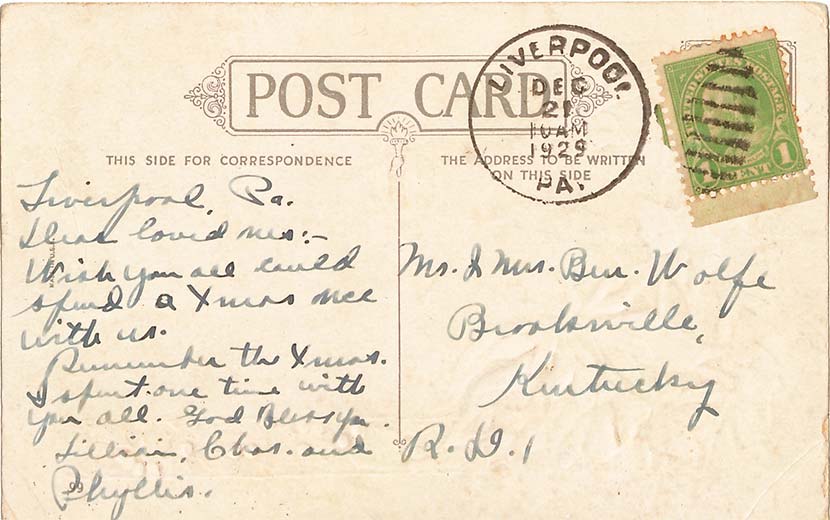 POST CARD
THIS SIDE FOR CORRESPONDENCE
THE ADDRESS TO BE WRITTEN
ON THIS SIDE
LIVERPOOL
DEC
21
10 AM
1929
PA.
UNITED STATES POSTAGE
1 CENT 1
Liverpool, Pa.
Dear loved ones:-
Wish you all could
spend a Xmas
with us.
Remember the Xmas.
I spent one time with
you all. God Bless you.
Lillian, Chas. and
Phyllis.
99
Mr. & Mrs. Ben. Wolfe
Brooksville,
Kentucky
R. D. 1